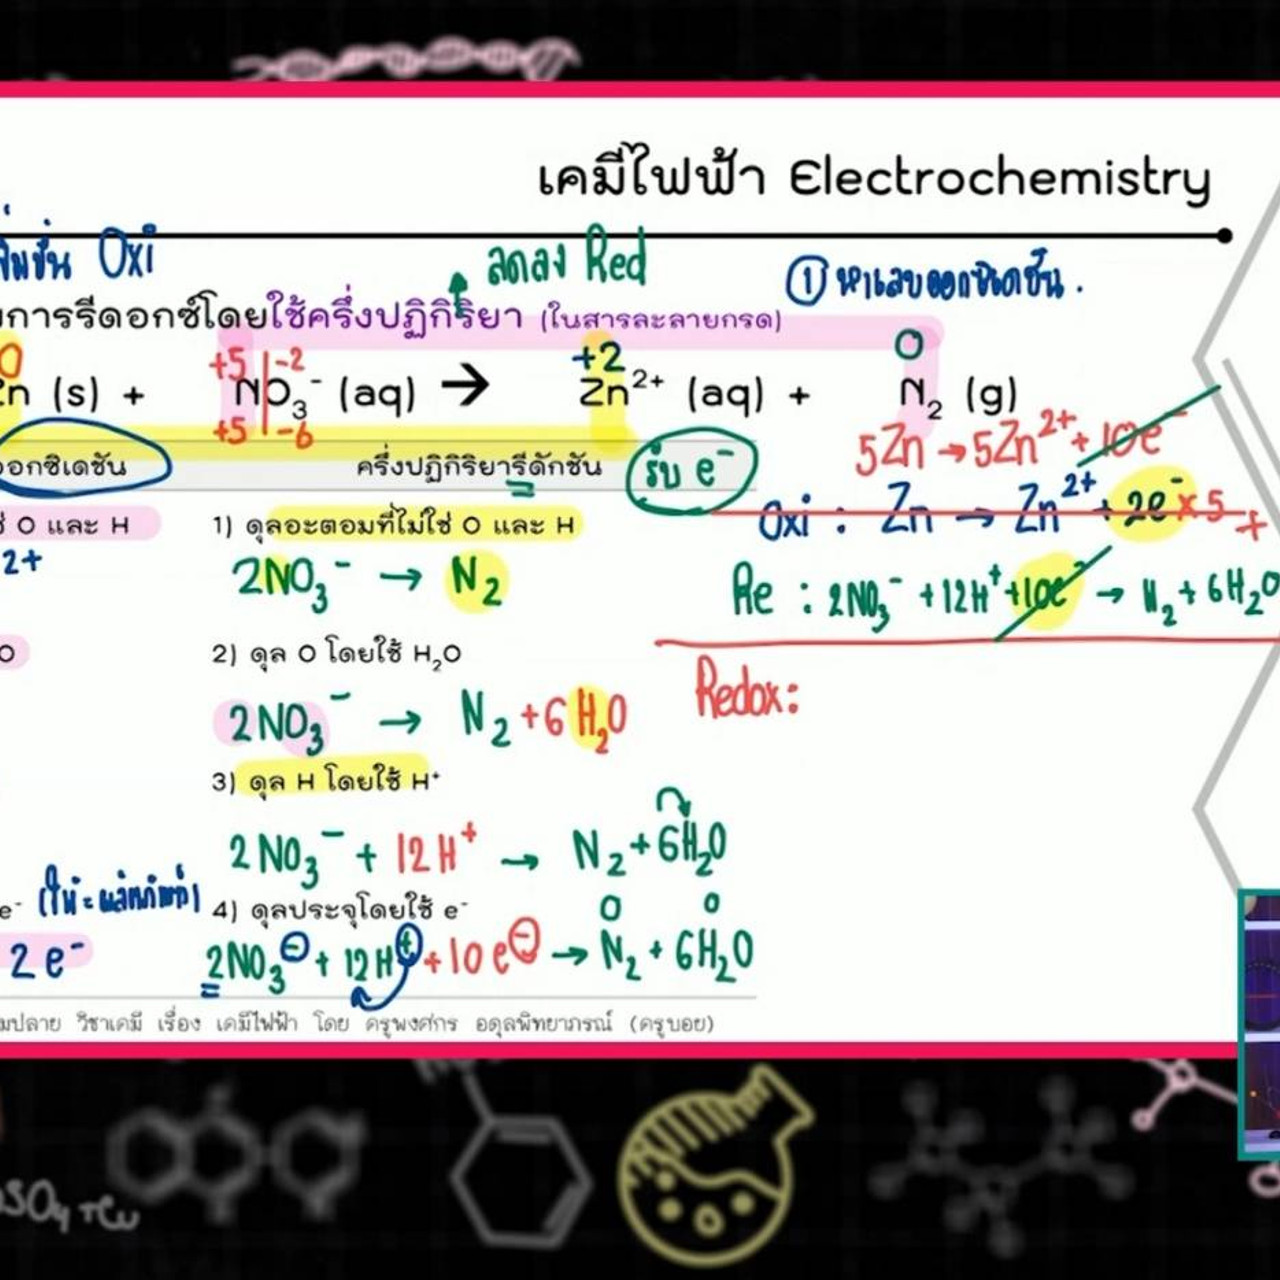 เคมีไฟฟ้า Electrochemistry
Oxi
ลดลง Red
① หาเลขออกซิเดชัน.
การรีดอกซ์โดยใช้ครึ่งปฏิกิริยา (ในสารละลายกรด)
0 +5 -2 +2 0
(s) + NO₃⁻ (aq) → Zn²⁺ (aq) + N₂ (g)
+5 -6
5Zn → 5Zn²⁺ + 10e⁻
ออกซิเดชัน
ครึ่งปฏิกิริยารีดักชัน
รับ e⁻
Oxi : Zn → Zn²⁺ + 2e⁻ x 5 +
O และ H
1) ดุลอะตอมที่ไม่ใช่ O และ H
2+
2NO₃⁻ → N₂
Re : 2NO₃⁻ + 12H⁺ + 10e⁻ → N₂ + 6H₂O
O
2) ดุล O โดยใช้ H₂O
Redox:
2NO₃⁻ → N₂ + 6H₂O
3) ดุล H โดยใช้ H⁺
2NO₃⁻ + 12H⁺ → N₂ + 6H₂O
e⁻
4) ดุลประจุโดยใช้ e⁻
0 0
2e⁻
2NO₃⁻ + 12H⁺ + 10e⁻ → N₂ + 6H₂O
มปลาย วิชาเคมี เรื่อง เคมีไฟฟ้า โดย ครูพงศกร อดุลพิทยาภรณ์ (ครูบอย)
SO₄